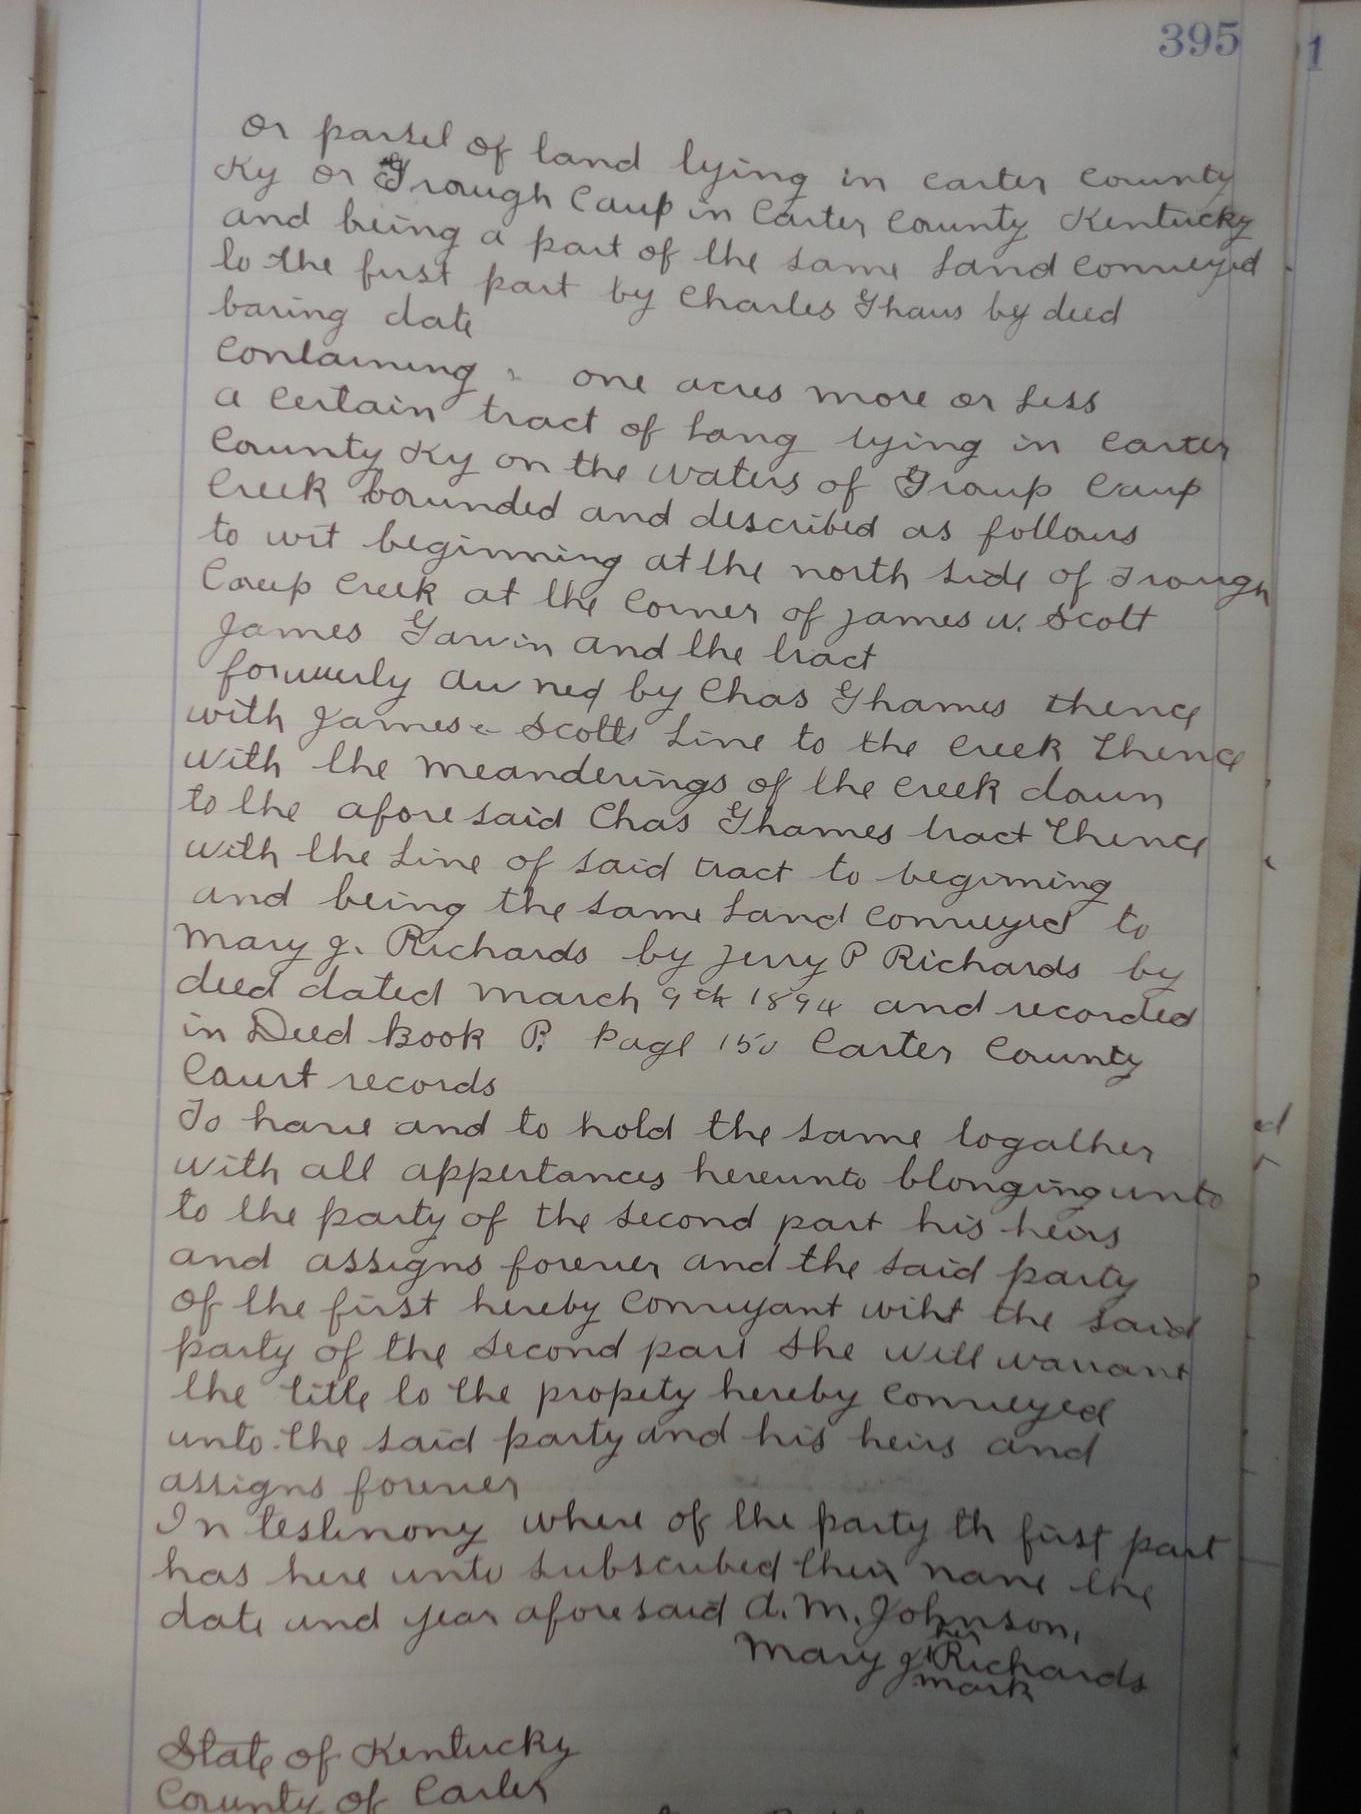 395
1
or parsel of land lying in carter county
Ky or Trough Camp in Carter County Kentucky
and being a part of the same land conveyed
to the first part by Charles Ghaus by deed
baring date
containing one acres more or less
a certain tract of lang lying in carter
County Ky on the waters of Group Camp
Creek bounded and described as follows
to wit beginning at the north side of Trough
Camp Creek at the corner of James W. Scott
James Garvin and the tract
formerly owned by Chas Ghames thence
with James Scotts line to the creek thence
with the meanderings of the creek down
to the aforesaid Chas Ghames tract thence
with the line of said tract to begining
and being the same land conveyed to
Mary J. Richards by Jerry P Richards by
deed dated march 9th 1894 and recorded
in Deed Book P. Page 150 Carter County
Court records
To have and to hold the same logather
with all appertances hereunto blonging unto
to the party of the second part his heirs
and assigns forever and the said party
of the first hereby convuyant wiht the said
party of the second part she will warrant
the title to the propety hereby conveyed
unto the said party and his heirs and
assigns forever
In testimony where of the party th first part
has here unto subscribed their name the
date and year aforesaid A. M. Johnson,
her
Mary J x Richards
mark
State of Kentucky
County of Carter